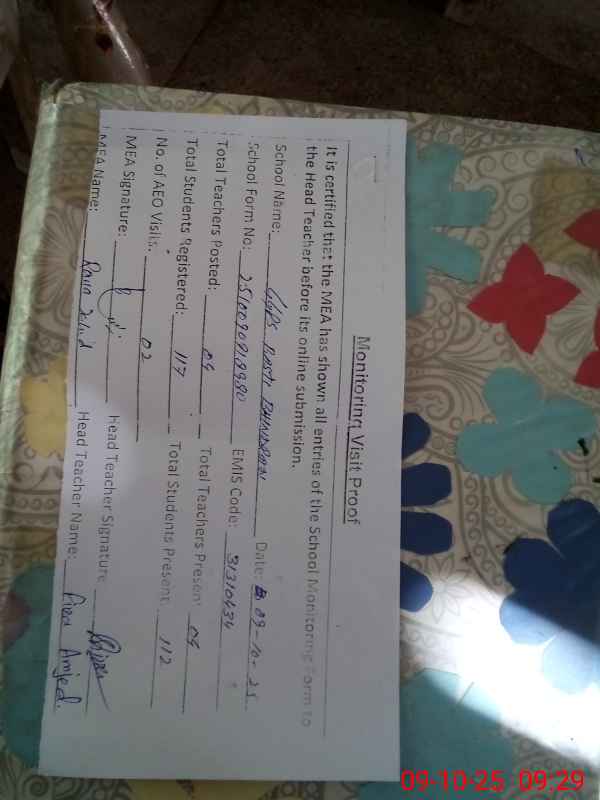 Monitoring Visit Proof
It is certified that the MEA has shown all entries of the School Monitoring Form to
the Head Teacher before its online submission.
School Name: GGPS BASTI Date: 09-10-25
School Form No: EMIS Code: 31310434
Total Teachers Posted: 04 Total Teachers Present: 04
Total Students Registered: 117 Total Students Present: 112
No. of AEO Visits: 02
MEA Signature: Head Teacher Signature:
MEA Name: Head Teacher Name: Amjed.
09-10-25 09:29